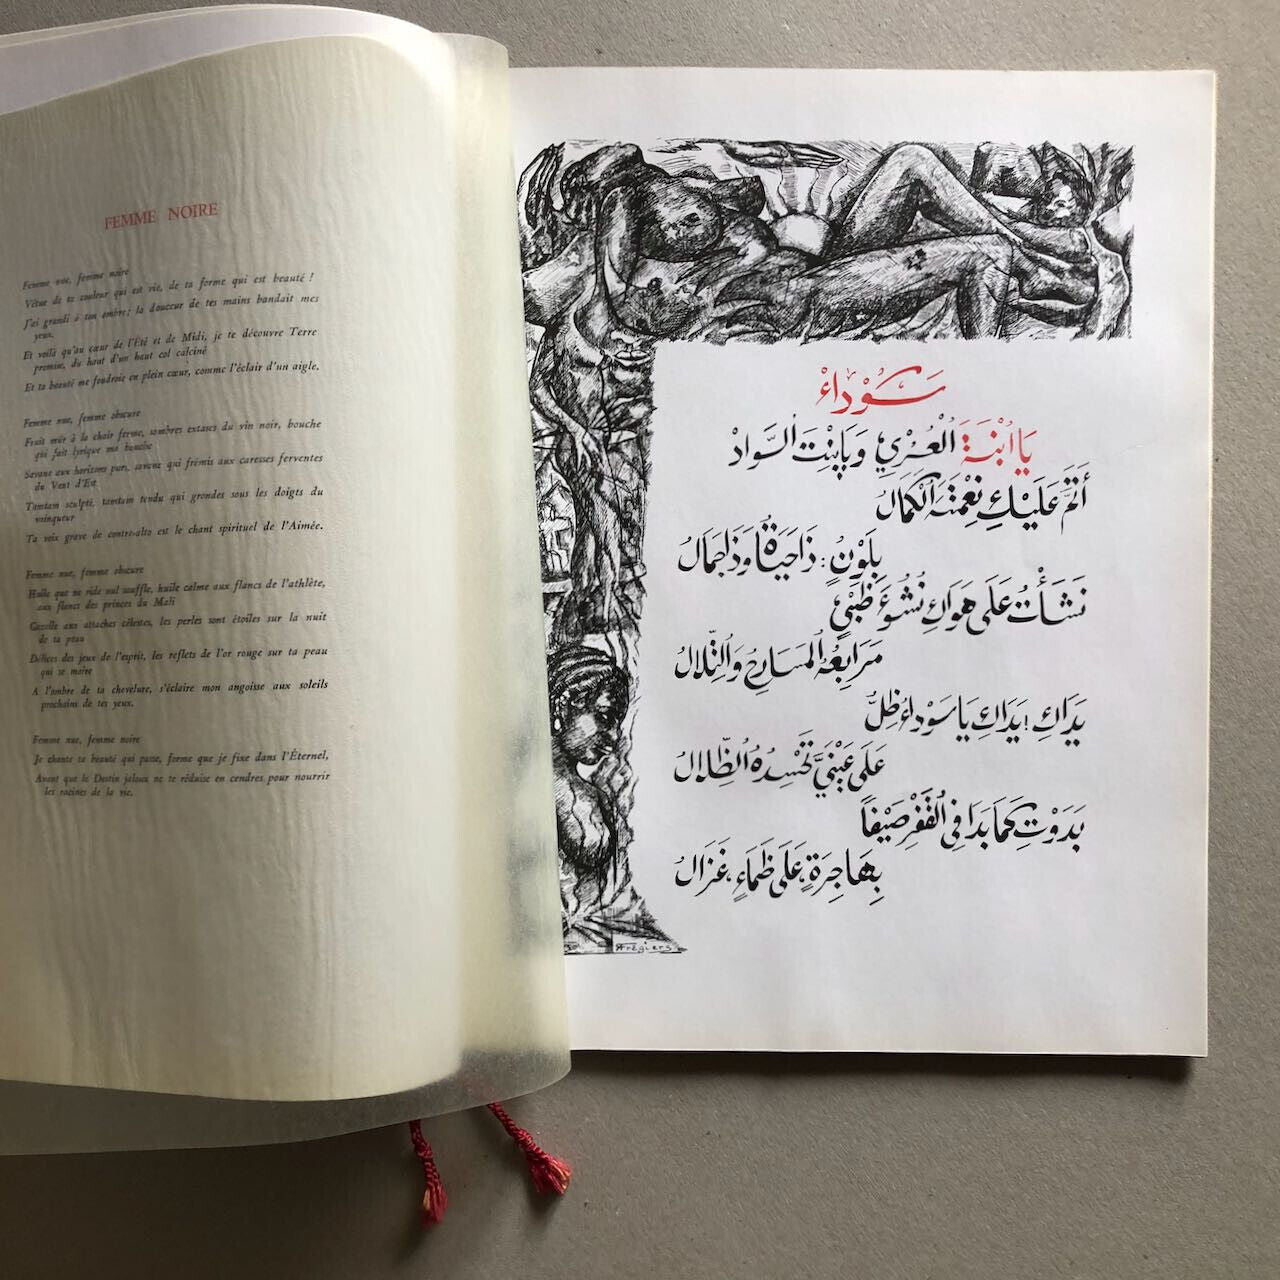 FEMME NOIRE
Femme nue, femme noire
Vêtue de ta couleur qui est vie, de ta forme qui est beauté !
J'ai grandi à ton ombre; la douceur de tes mains bandait mes
yeux.
Et voilà qu'au cœur de l'Été et de Midi, je te découvre Terre
promise, du haut d'un haut col calciné
Et ta beauté me foudroie en plein cœur, comme l'éclair d'un aigle.
Femme nue, femme obscure
Fruit mûr à la chair ferme, sombres extases du vin noir, bouche
qui fait lyrique ma bouche
Savane aux horizons purs, savane qui frémis aux caresses ferventes
du Vent d'Est
Tamtam sculpté, tamtam tendu qui grondes sous les doigts du
vainqueur
Ta voix grave de contre-alto est le chant spirituel de l'Aimée.
Femme nue, femme obscure
Huile que ne ride nul souffle, huile calme aux flancs de l'athlète,
aux flancs des princes du Mali
Gazelle aux attaches célestes, les perles sont étoiles sur la nuit
de ta peau
Délices des jeux de l'esprit, les reflets de l'or rouge sur ta peau
qui se moire
A l'ombre de ta chevelure, s'éclaire mon angoisse aux soleils
prochains de tes yeux.
Femme nue, femme noire
Je chante ta beauté qui passe, forme que je fixe dans l'Éternel,
Avant que le Destin jaloux ne te réduise en cendres pour nourrir
les racines de la vie.
سَوْدَاءْ
يَا ابْنَةَ الْعُرْيِ وَيَابِنْتَ السَّوادْ
أَتَمَّ عَلَيْكِ نِعْمَتَهُ الْكَمَالُ
بِلَوْنٍ : ذَا حَيَاةٌ وَذَا جَمَالُ
نَشَأْتُ عَلَى هَوَاكِ نُشُوءَ ظَبْيٍ
مَرَابِعُهُ الْمَسَارِحُ وَالتِّلَالُ
يَدَاكِ ! يَدَاكِ يَا سَوْدَاءُ ظِلُّ
عَلَى عَيْنَيَّ تَحْسُدُهُ الظِّلَالُ
بَدَوْتِ كَمَا بَدَا فِي الْقَفْرِ صَيْفًا
بِهَاجِرَةٍ، عَلَى ظَمَاءٍ، غَزَالُ
Frégiers